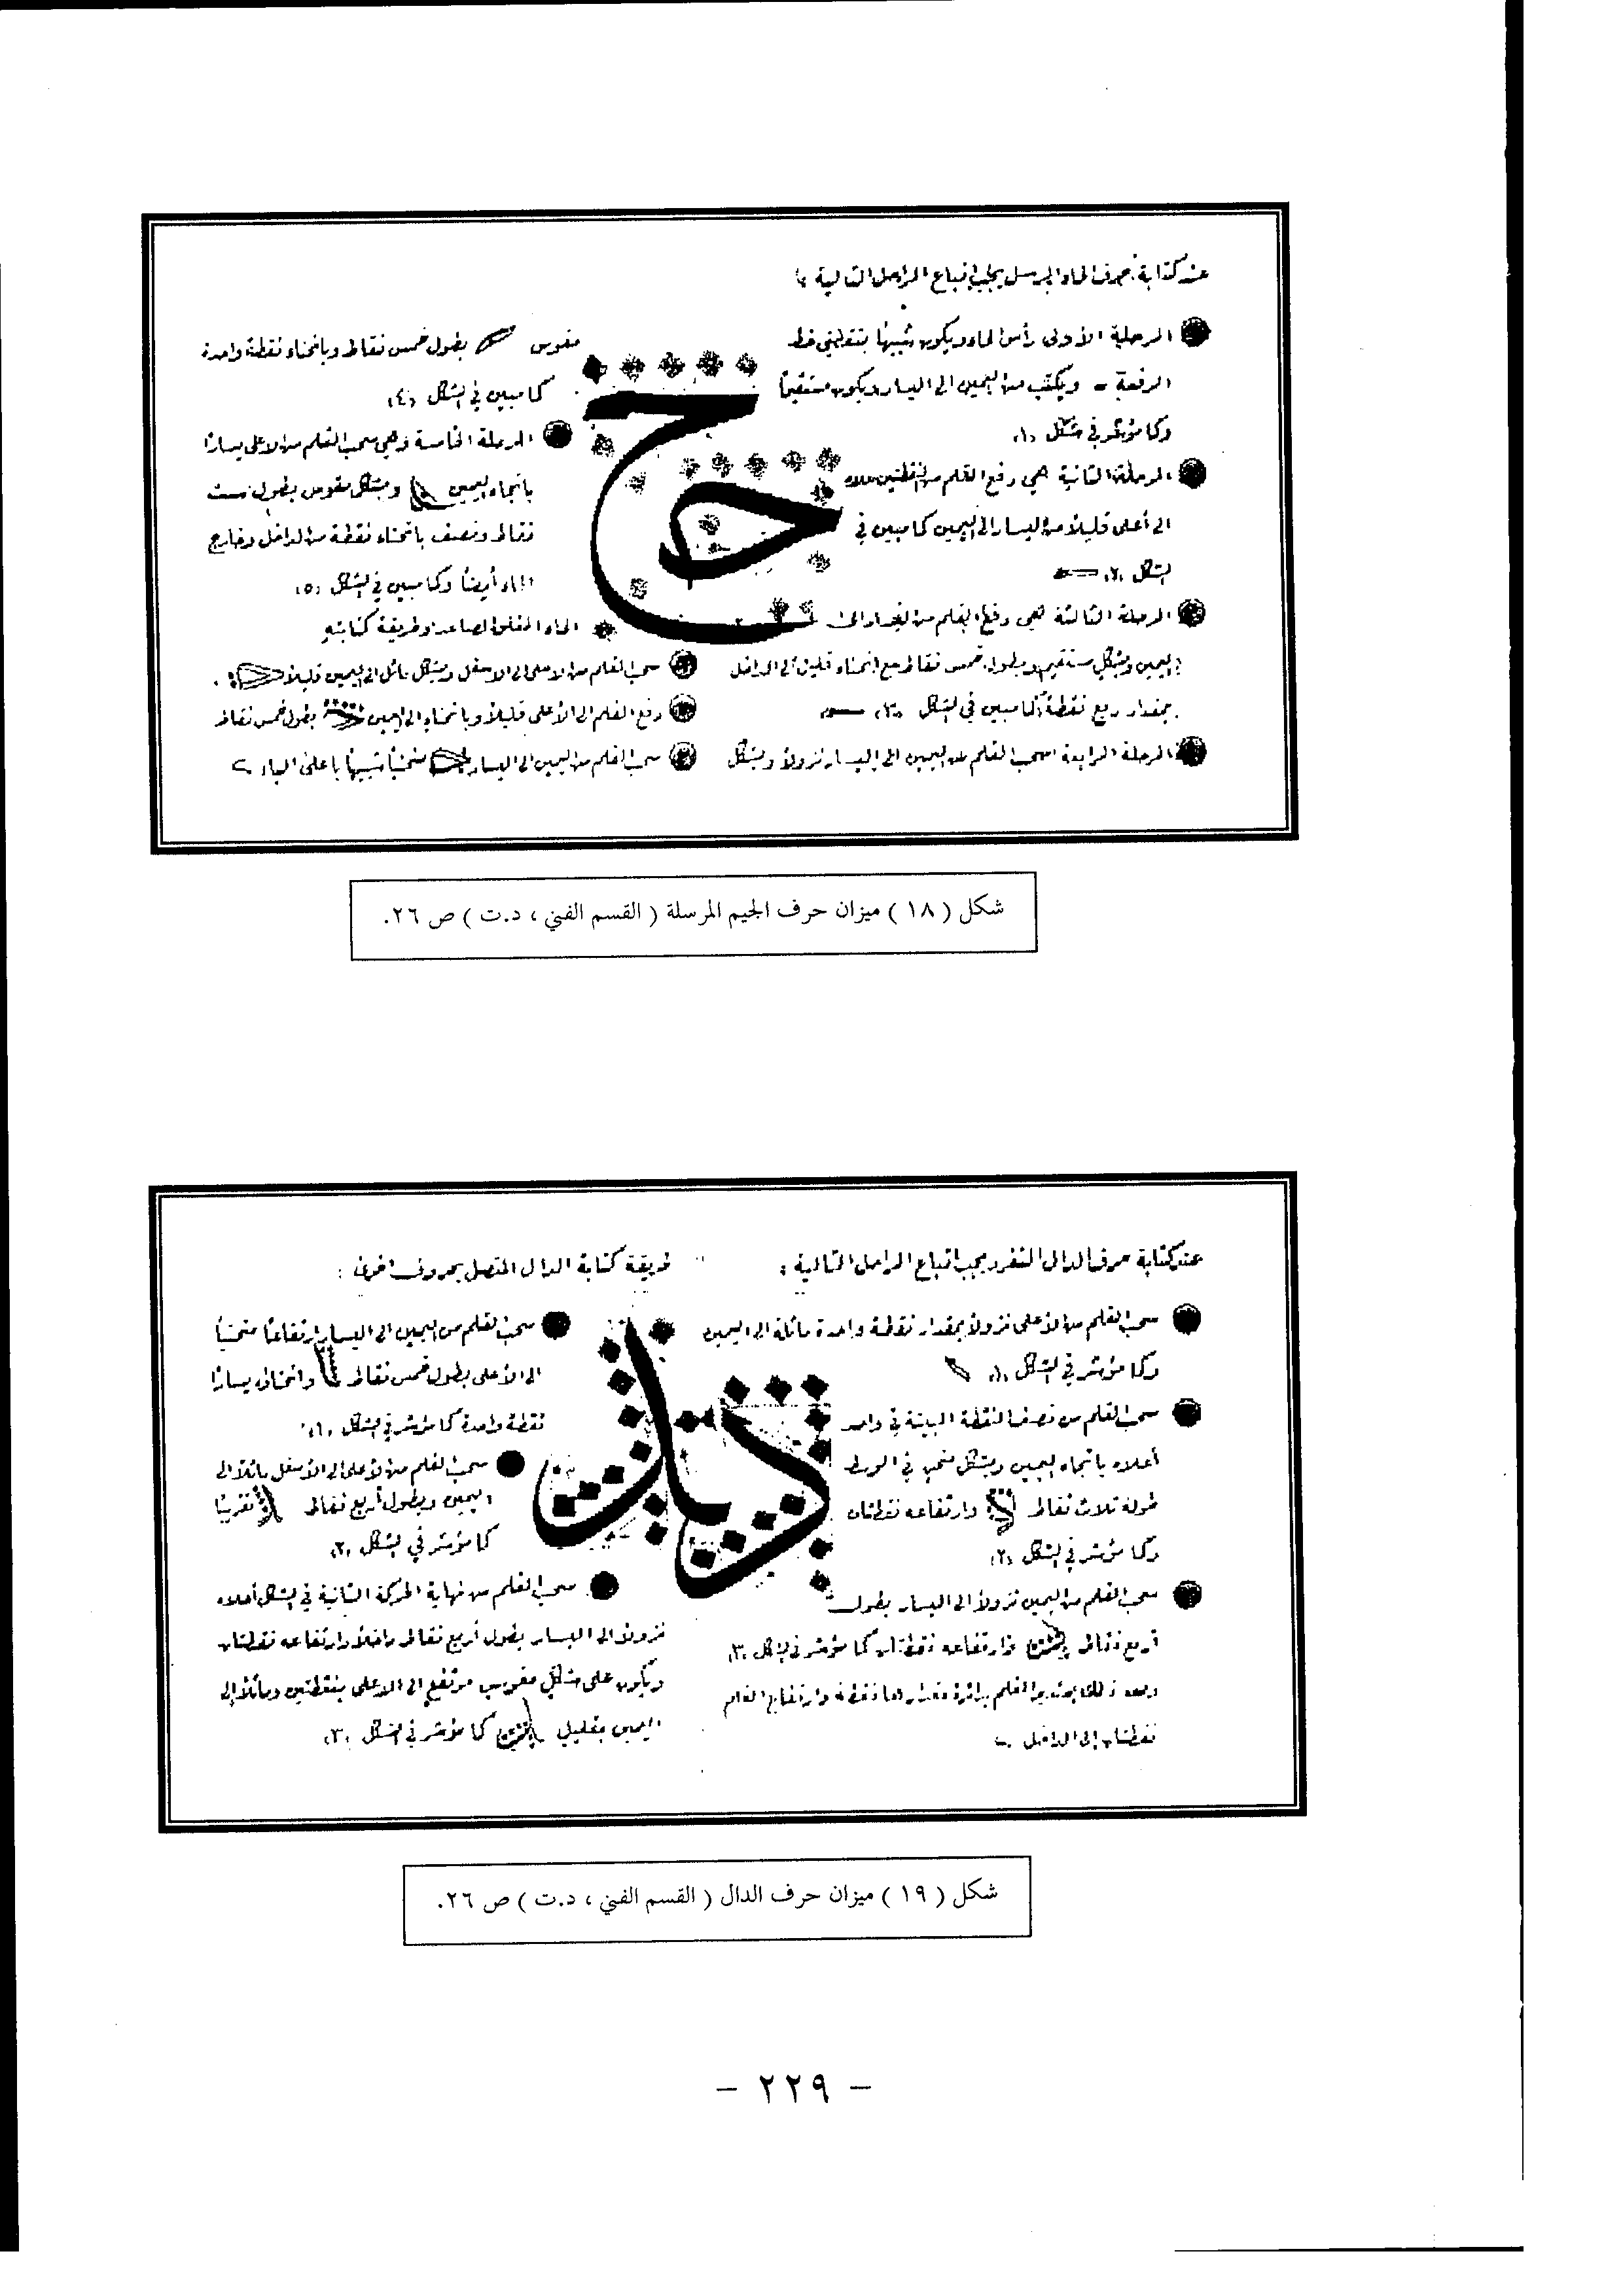 عند كتابة حرف الحاء المرسل يجب إتباع المراحل التالية :
المرحلة الأولى رأس الحاء ويكون شبيهاً بنقطتي خط
الرقعة ـ ويكتب من اليمين الى اليسار ويكون مستقيماً
وكما مؤشر في شكل (١)
المرحلة الثانية هي رفع القلم من النقطتين علاه
الى أعلى قليلاً من اليسار الى اليمين كما مبين في
الشكل (٢)
المرحلة الثالثة هي رفع القلم من اليسار الى
اليمين وبشكل مستقيم وبطول خمس نقاط مع إنحناء قليل الى الداخل
بمقدار ربع نقطة كما مبين في الشكل (٣)
المرحلة الرابعة سحب القلم من اليمين الى اليسار نزولاً وبشكل
مقوس بطول خمس نقاط وبانحناء نقطة واحدة
كما مبين في الشكل (٤)
المرحلة الخامسة وهي سحب القلم من الاعلى يسارًا
باتجاه اليمين وبشكل مقوس بطول ست
نقاط ونصف بانحناء نقطة من الداخل وخارج
الحاء أيضاً وكما مبين في الشكل (٥)
الحاء المغلق الصاعد وطريقة كتابته
سحب القلم من الاعلى الى الاسفل وبشكل مائل الى اليمين قليلاً
رفع القلم الى الأعلى قليلاً وبانحناء الى اليمين بطول خمس نقاط
سحب القلم من اليمين الى اليسار منحنياً شبيهاً باعلى الياء
شكل ( ١٨ ) ميزان حرف الجيم المرسلة ( القسم الفني ، د.ت ) ص ٢٦.
عند كتابة حرف الدال المنفرد يجب اتباع المراحل التالية :
سحب القلم من الأعلى نزولاً بمقدار نقطة واحدة مائلة الى اليمين
وكما مؤشر في الشكل (١)
سحب القلم من نصف النقطة المبينة في واحد
أعلاه باتجاه اليمين وبشكل منحني في الوسط
طوله ثلاث نقاط وارتفاعه نقطتان
وكما مؤشر في الشكل (٢)
سحب القلم من اليمين نزولاً الى اليسار بطول
أربع نقاط وارتفاعه نقطتان كما مؤشر في الشكل (٣)
وبعد ذلك القلم نقطة وارتفاع القلم
نقطتان إلى الداخل
طريقة كتابة الدال المتصل بحروف اخرى :
سحب القلم من اليمين الى اليسار ارتفاعاً منحنياً
الى الأعلى بطول خمس نقاط وانحناء يسارًا
نقطة واحدة كما مؤشر في الشكل (١)
سحب القلم من لأعلى الى الأسفل مائلاً الى
اليمين وبطول أربع نقاط تقريبًا
كما مؤشر في الشكل (٢)
سحب القلم من نهاية الحركة الثانية في الشكل أعلاه
نزولاً الى اليسار بطول أربع نقاط داخلاً وارتفاعه نقطتان
ويكون على شكل مقوس مرتفع الى الاعلى بنقطتين ومائلاً إلى
اليمين بقليل كما مؤشر في الشكل (٣)
شكل ( ١٩ ) ميزان حرف الدال ( القسم الفني ، د.ت ) ص ٢٦.
- ٢٢٩ -